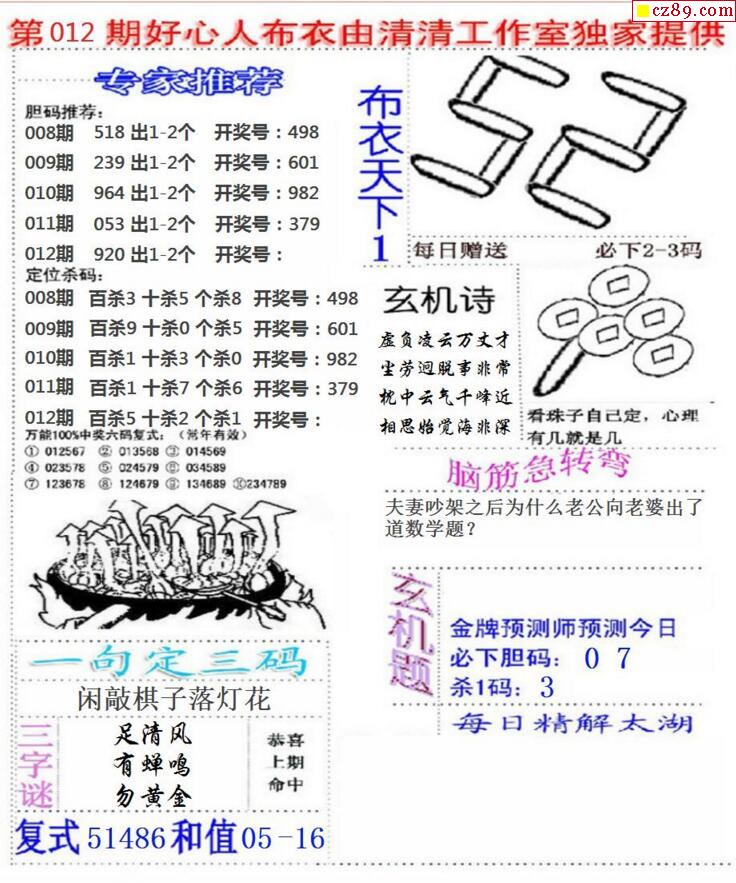 cz89.com
第012期好心人布衣由清清工作室独家提供
专家推荐
胆码推荐：
008期 518 出1-2个 开奖号：498
009期 239 出1-2个 开奖号：601
010期 964 出1-2个 开奖号：982
011期 053 出1-2个 开奖号：379
012期 920 出1-2个 开奖号：
定位杀码：
008期 百杀3 十杀5 个杀8 开奖号：498
009期 百杀9 十杀0 个杀5 开奖号：601
010期 百杀1 十杀3 个杀0 开奖号：982
011期 百杀1 十杀7 个杀6 开奖号：379
012期 百杀5 十杀2 个杀1 开奖号：
万能100%中奖六码复式：（常年有效）
① 012567 ② 013568 ③ 014569
④ 023578 ⑤ 024579 ⑥ 034589
⑦ 123678 ⑧ 124679 ⑨ 134689 ⑩234789
一句定三码
闲敲棋子落灯花
三字谜
足清风
有蝉鸣
勿黄金
恭喜
上期
命中
复式51486和值05-16
布衣天下1
52
每日赠送 必下2-3码
玄机诗
虚负凌云万丈才
尘劳迥脱事非常
枕中云气千峰近
相思始觉海非深
看珠子自己定，心理
有几就是几
脑筋急转弯
夫妻吵架之后为什么老公向老婆出了
道数学题？
玄机题
金牌预测师预测今日
必下胆码： 0 7
杀1码：3
每日精解太湖